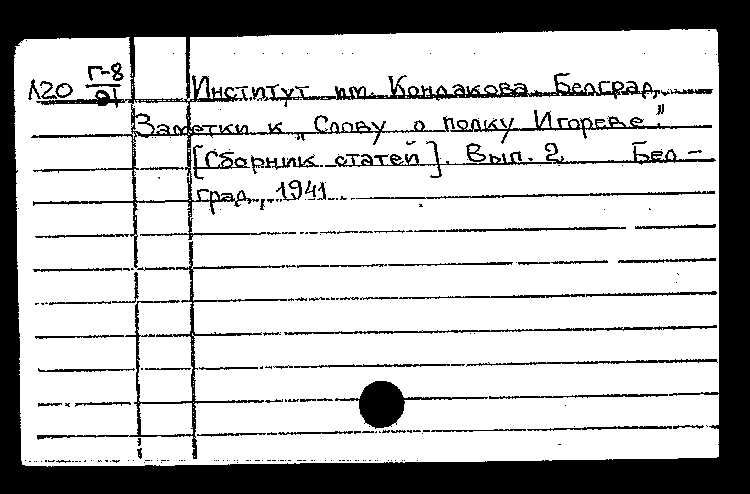 Л20 Г-8/91 Институт им. Кондакова. Белград.
Заметки к „Слову о полку Игореве".
[Сборник статей]. Вып. 2. Бел-
град, 1941.